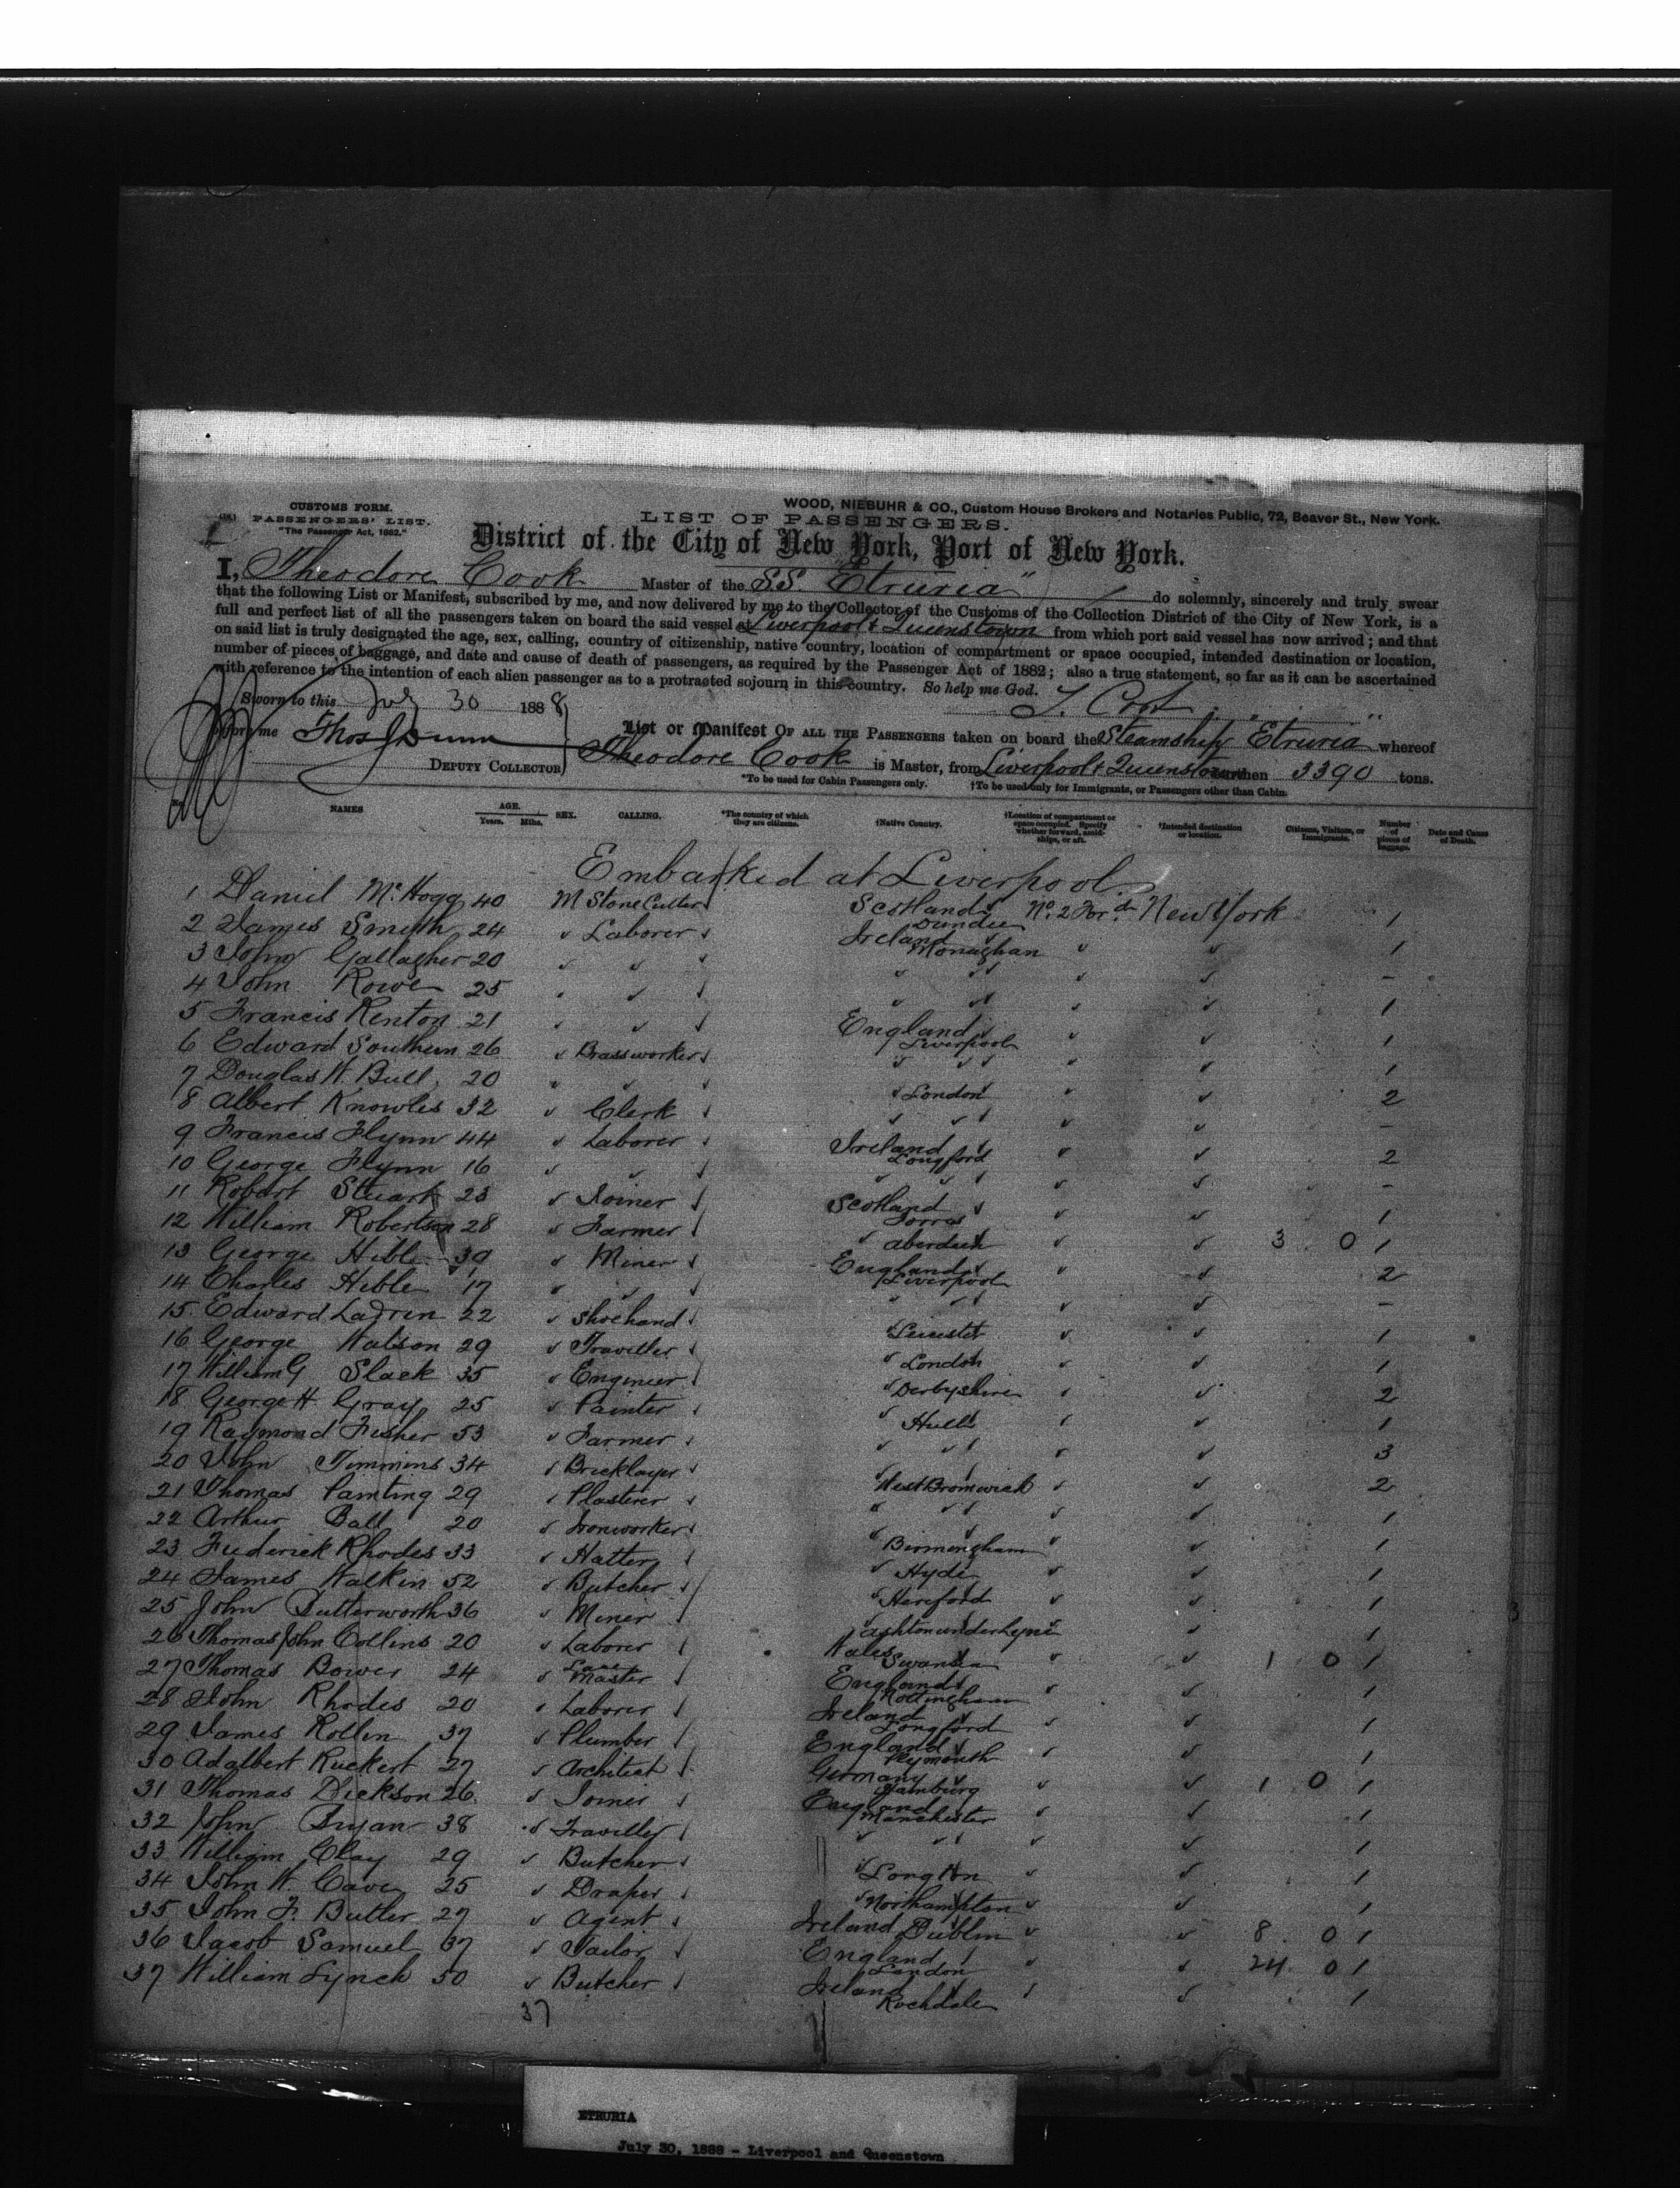 CUSTOMS FORM.
PASSENGERS' LIST.
"The Passenger Act, 1882."
WOOD, NIEBUHR & CO., Custom House Brokers and Notaries Public, 72, Beaver St., New York.
LIST OF PASSENGERS.
District of the City of New York, Port of New York.
I, Theodore Cook Master of the SS. "Etruria" do solemnly, sincerely and truly swear
that the following List or Manifest, subscribed by me, and now delivered by me to the Collector of the Customs of the Collection District of the City of New York, is a
full and perfect list of all the passengers taken on board the said vessel at Liverpool & Queenstown from which port said vessel has now arrived; and that
on said list is truly designated the age, sex, calling, country of citizenship, native country, location of compartment or space occupied, intended destination or location,
number of pieces of baggage, and date and cause of death of passengers, as required by the Passenger Act of 1882; also a true statement, so far as it can be ascertained
with reference to the intention of each alien passenger as to a protracted sojourn in this country. So help me God.
Sworn to this July 30 1888
T. Cook
before me Thos J Dunn
DEPUTY COLLECTOR
List or Manifest OF ALL THE PASSENGERS taken on board the Steamship "Etruria" whereof
Theodore Cook is Master, from Liverpool & Queenstown burthen 3390 tons.
*To be used for Cabin Passengers only. †To be used only for Immigrants, or Passengers other than Cabin.
No. NAMES AGE. Years. Mths. SEX. CALLING. *The country of which they are citizens. †Native Country. †Location of compartment or space occupied. Specify whether forward, amidships, or aft. †Intended destination or location. Citizens, Visitors, or Immigrants. Number of pieces of baggage. Date and Cause of Death.
Embarked at Liverpool
1 Daniel McHogg 40 M Stone Cutter Scotland Dundee No. 2 For'd New York 1
2 James Smyth 24 " Laborer Ireland Monaghan " " 1
3 John Gallagher 20 " " " " " " -
4 John Rowe 25 " " " " " " 1
5 Francis Renton 21 " " England Liverpool " " 1
6 Edward Southern 26 " Brassworker " " " " 1
7 Douglas W. Bull 20 " " " London " " 2
8 Albert Knowles 32 " Clerk " " " " -
9 Francis Flynn 44 " Laborer Ireland Longford " " 2
10 George Flynn 16 " " " " " " -
11 Robert Stuart 23 " Joiner Scotland Forres " " 1
12 William Robertson 28 " Farmer " Aberdeen " " 3 0 1
13 George Hible 39 " Miner England Liverpool " " 2
14 Charles Hible 17 " " " " " " -
15 Edward Ladrin 22 " Shoehand " Leicester " " 1
16 George Watson 29 " Traveller " London " " 1
17 William G Slack 35 " Engineer " Derbyshire " " 2
18 George H Gray 25 " Painter " Hull " " 1
19 Raymond Fisher 53 " Farmer " " " " 3
20 John Timmins 34 " Bricklayer " West Bromwich " " 2
21 Thomas Panting 29 " Plasterer " " " " 1
22 Arthur Ball 20 " Ironworker " Birmingham " " 1
23 Frederick Rhodes 33 " Hatter " Hyde " " 1
24 James Walkin 52 " Butcher " Hereford " " 1
25 John Butterworth 36 " Miner " Ashton under Lyne " " 1
26 Thomas John Collins 20 " Laborer Wales Swansea " " 1 0 1
27 Thomas Bower 24 " Lace Master England Nottingham " " 1
28 John Rhodes 20 " Laborer Ireland Longford " " 1
29 James Rollin 37 " Plumber England Plymouth " " 1
30 Adalbert Ruckert 27 " Architect Germany Hamburg " " 1 0 1
31 Thomas Dickson 26 " Joiner England Manchester " " 1
32 John Bryan 38 " Traveller " " " " 1
33 William Clay 29 " Butcher " Longton " " 1
34 John W. Cave 25 " Draper " Northampton " " 1
35 John F. Butler 27 " Agent Ireland Dublin " " 8 0 1
36 Jacob Samuel 37 " Tailor England London " " 24 0 1
37 William Lynch 50 " Butcher Ireland Rochdale " " 1
37
ETRURIA
July 30, 1888 - Liverpool and Queenstown